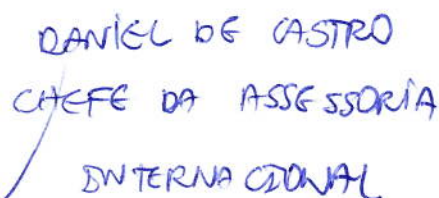 DANIEL DE CASTRO
CHEFE DA ASSESSORIA
INTERNACIONAL